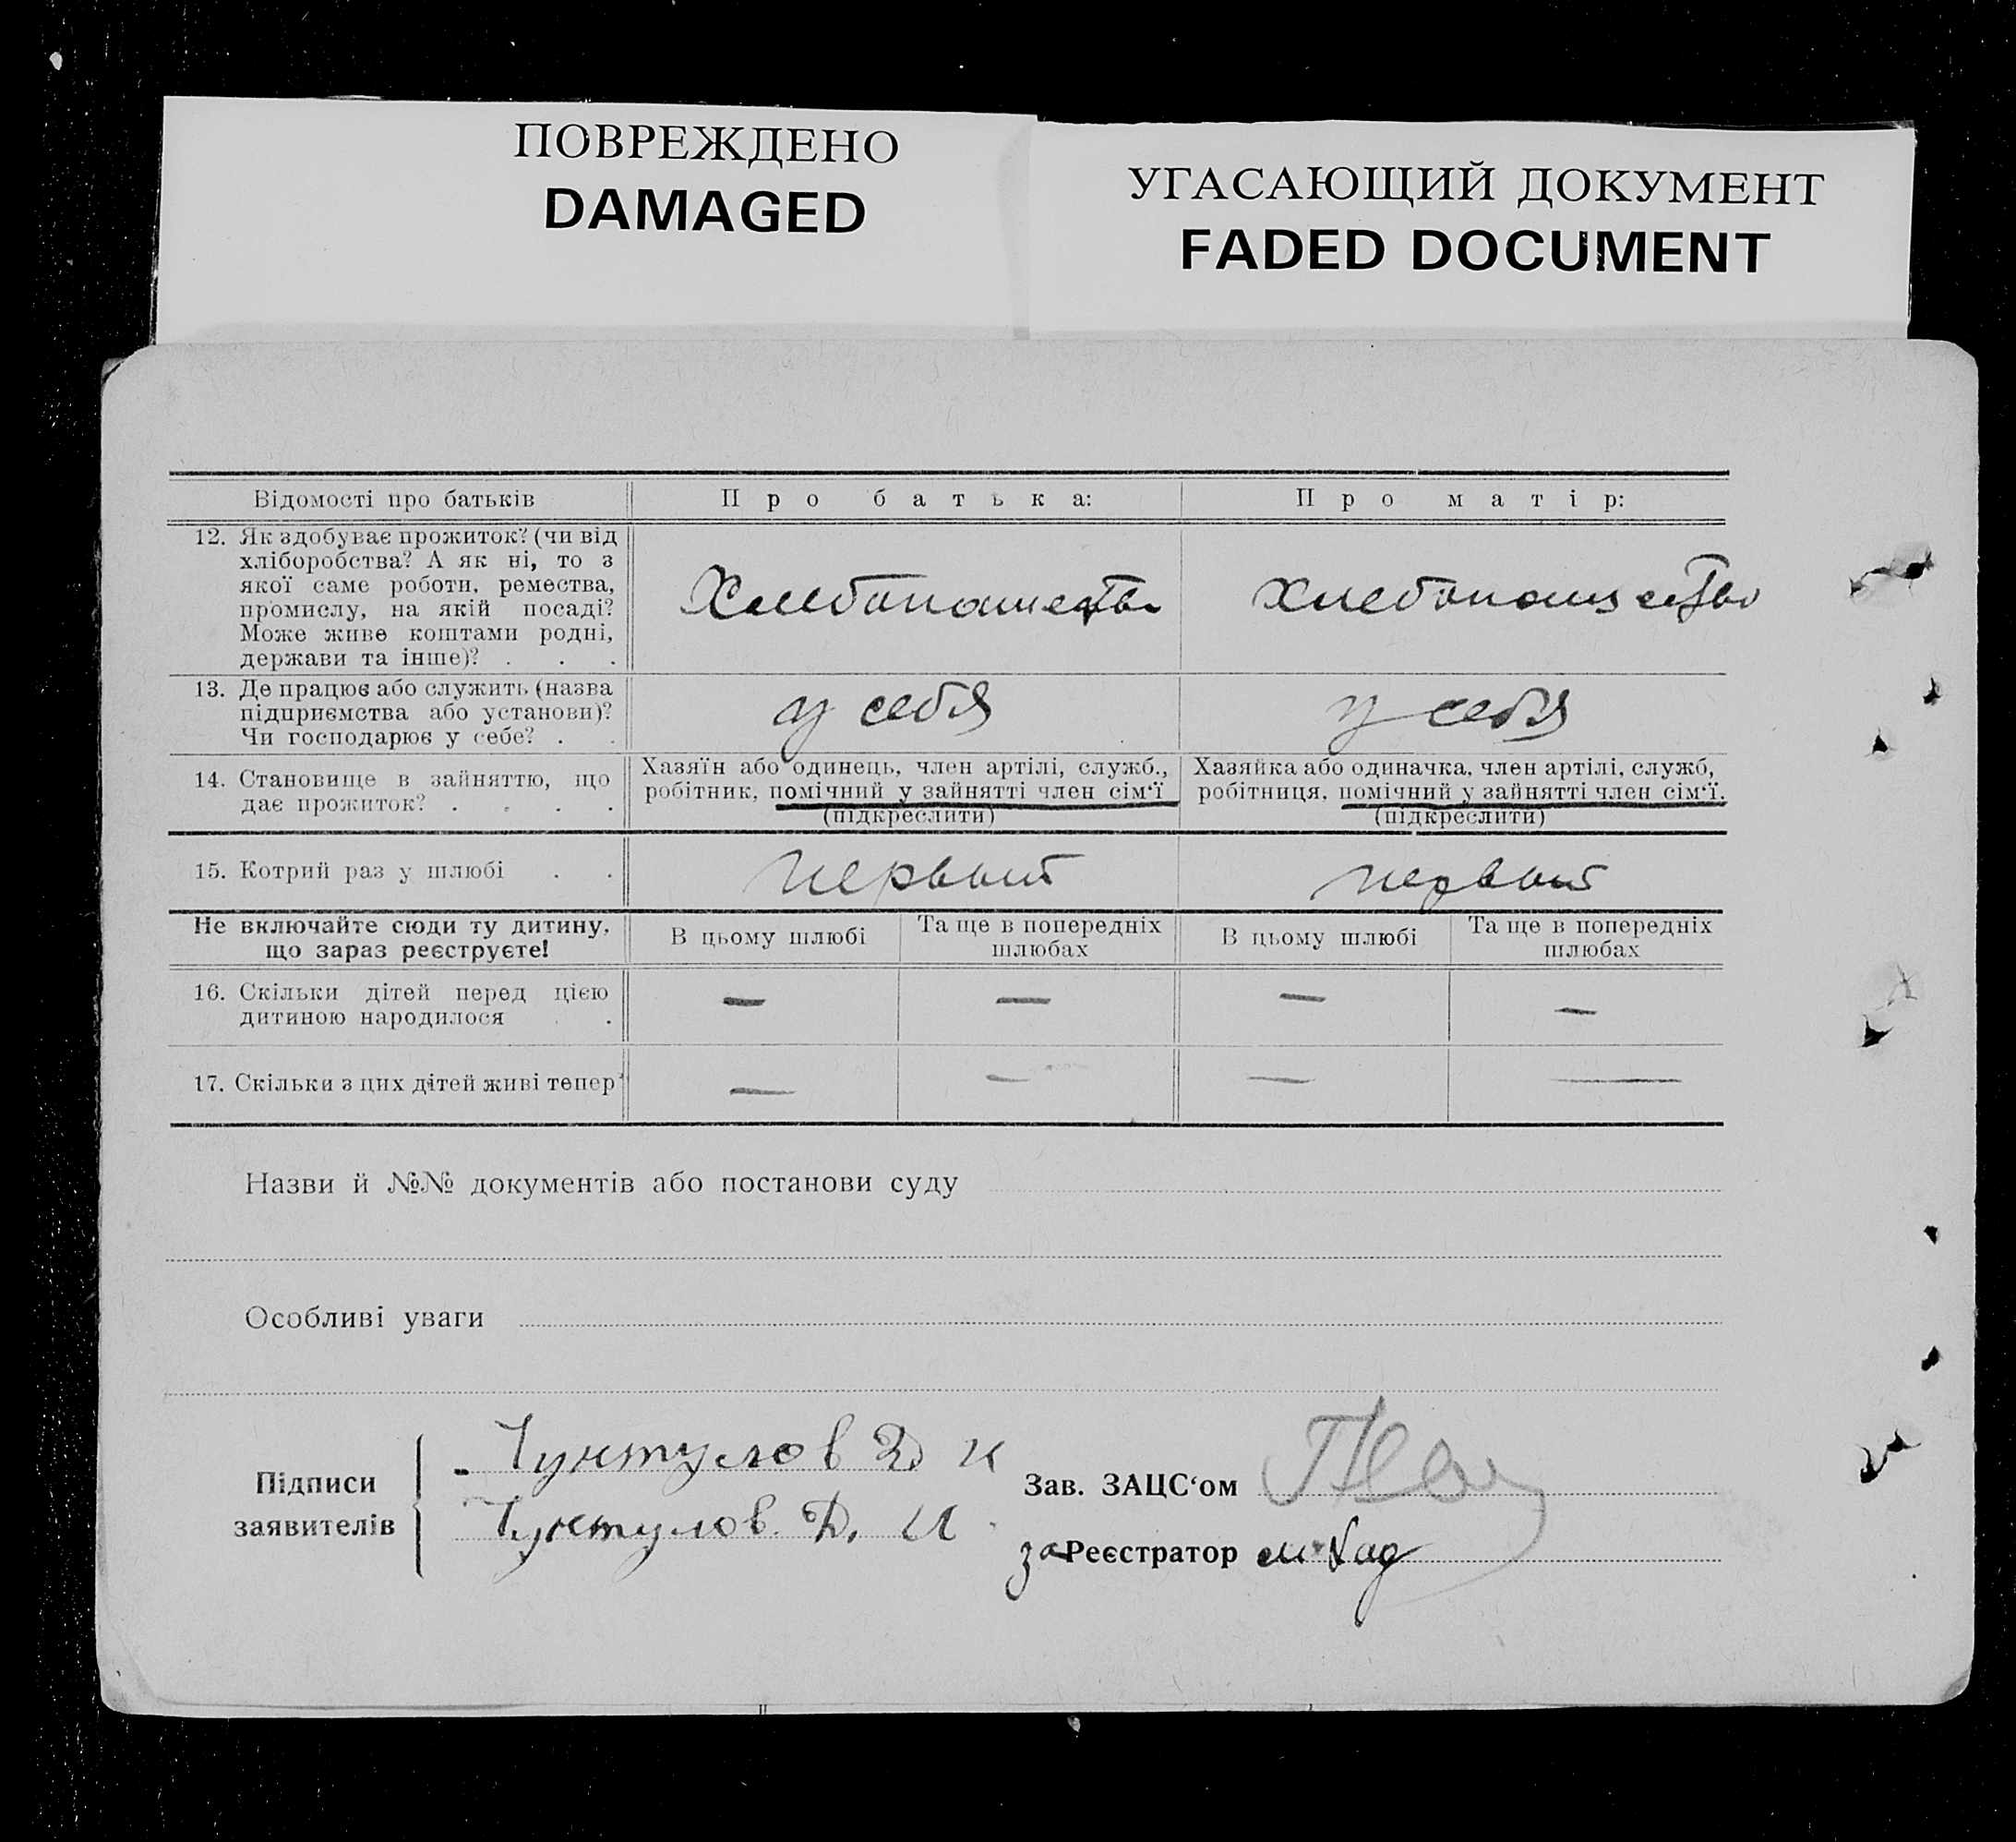 ПОВРЕЖДЕНО
DAMAGED
УГАСАЮЩИЙ ДОКУМЕНТ
FADED DOCUMENT
Відомості про батьків
Про батька:
Про матір:
12. Як здобуває прожиток? (чи від
хліборобства? А як ні, то з
якої саме роботи, ремества,
промислу, на якій посаді?
Може живе коштами родні,
держави та інше)? . . .
Хлебопашество
Хлебопашество
13. Де працює або служить (назва
підприємства або установи)?
Чи господарює у себе? . .
у себя
у себя
14. Становище в зайняттю, що
дає прожиток? . . . .
Хазяїн або одинець, член артілі, служб.,
робітник, помічний у зайнятті член сім‘ї
(підкреслити)
Хазяйка або одиначка, член артілі, служб,
робітниця, помічний у зайнятті член сім‘ї.
(підкреслити)
15. Котрий раз у шлюбі . .
первый
первый
Не включайте сюди ту дитину,
що зараз реєструєте!
В цьому шлюбі
Та ще в попередніх
шлюбах
В цьому шлюбі
Та ще в попередніх
шлюбах
16. Скільки дітей перед цією
дитиною народилося . .
— — — —
17. Скільки з цих дітей живі тепер?
— — — —
Назви й №№ документів або постанови суду
Особливі уваги
Підписи
заявителів
Чунтулов Д И
Чунтулов. Д. И.
Зав. ЗАЦС‘ом
за Реєстратор